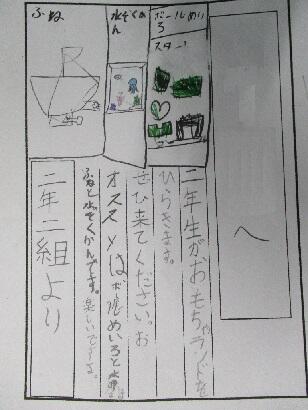 へ
二年生がおもちゃランドを
ひらきます。
ぜひ来てください。お
オススメはボールめいろと水
ふねと水ぞくかんです。楽しいですよ。
二年二組より
ボールめい
ろ
スタート
水ぞくかん
ふね